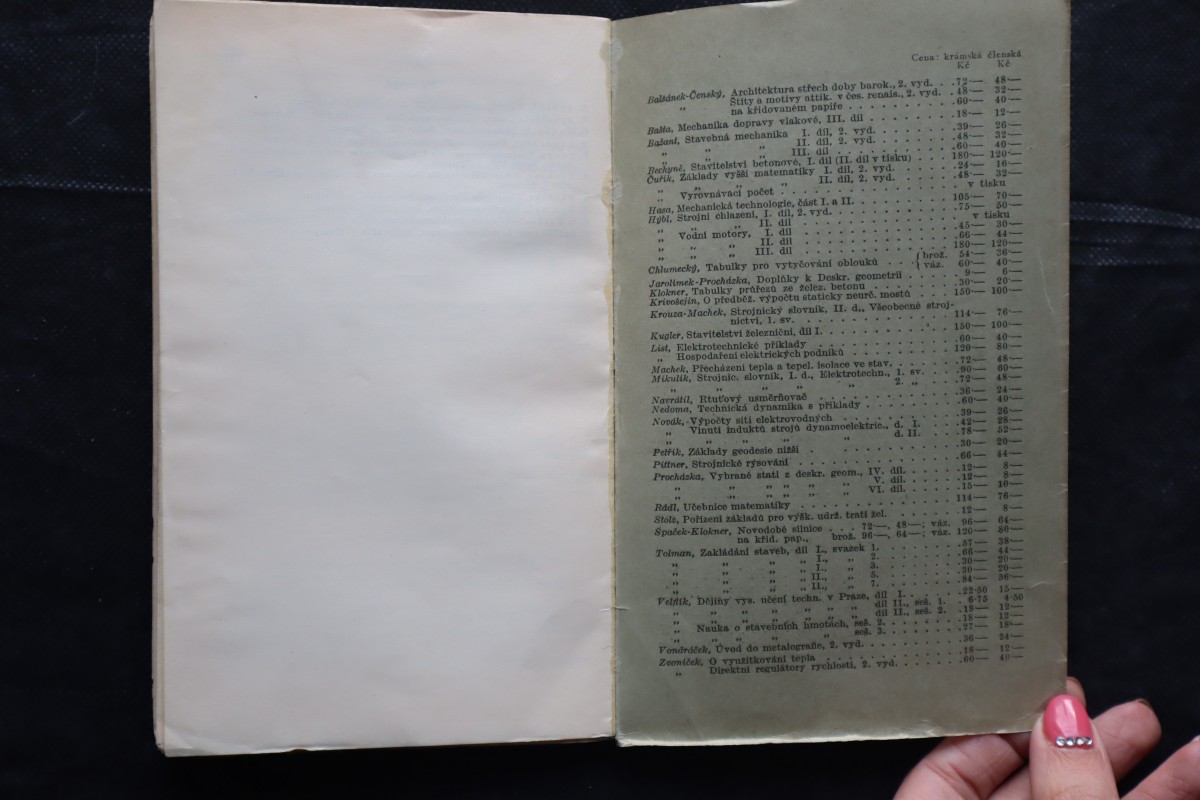 Cena: krámská členská
Kč Kč
Balšánek-Čenský, Architektura střech doby barok., 2. vyd. . .72·— 48·—
„ Štíty a motivy attik. v čes. renais., 2. vyd. . 48·— 32·—
na křídovaném papíře . . . . . . . . . 60·— 40·—
Bašta, Mechanika dopravy vlakové, III. díl . . . . . . . .18·— 12·—
Bažant, Stavebná mechanika I. díl, 2. vyd. . . . . . . . .39·— 26·—
„ „ „ II. díl, 2. vyd. . . . . . . . .48·— 32·—
„ „ „ III. díl . . . . . . . . . .60·— 40·—
Bechyně, Stavitelství betonové, I. díl (II. díl v tisku) . . . . 180·— 120·—
Čuřík, Základy vyšší matematiky I. díl, 2. vyd. . . . . . .24·— 16·—
„ „ „ „ II. díl, 2. vyd. . . . . . .48·— 32·—
„ Vyrovnávací počet . . . . . . . . . . . . v tisku
Hasa, Mechanická technologie, část I. a II. . . . . . . . 105·— 70·—
Hýbl, Strojní chlazení, I. díl, 2. vyd. . . . . . . . . . .75·— 50·—
„ „ „ II. díl . . . . . . . . . . . v tisku
„ Vodní motory, I. díl . . . . . . . . . . . .45·— 30·—
„ „ „ II. díl . . . . . . . . . . . .66·— 44·—
„ „ „ III. díl . . . . . . . . . . . 180·— 120·—
Chlumecký, Tabulky pro vytyčování oblouků . . . { brož. 54·— 36·—
váz. 60·— 40·—
Jarolímek-Procházka, Doplňky k Deskr. geometrii . . . . . 9·— 6·—
Klokner, Tabulky průřezů ze želez. betonu . . . . . . . .30·— 20·—
Krivošejin, O předběž. výpočtu staticky neurč. mostů . . . . 150·— 100·—
Krouza-Machek, Strojnický slovník, II. d., Všeobecné stroj-
nictví, 1. sv. . . . . . . . . . . . . . 114·— 76·—
Kugler, Stavitelství železniční, díl I. . . . . . . . . . . 150·— 100·—
List, Elektrotechnické příklady . . . . . . . . . . . .60·— 40·—
„ Hospodaření elektrických podniků . . . . . . . . 120·— 80·—
Machek, Přecházení tepla a tepel. isolace ve stav. . . . . . .72·— 48·—
Mikulík, Strojnic. slovník, I. d., Elektrotechn., 1. sv. . . . .90·— 60·—
„ „ „ „ „ 2. „ . . . .72·— 48·—
Navrátil, Rtuťový usměrňovač . . . . . . . . . . . .36·— 24·—
Nedoma, Technická dynamika s příklady . . . . . . . . .60·— 40·—
Novák, Výpočty sítí elektrovodných . . . . . . . . . .39·— 26·—
„ Vinutí induktů strojů dynamoelektric., d. I. . . . .42·— 28·—
„ „ „ „ „ d. II. . . . .78·— 52·—
Petřík, Základy geodesie nižší . . . . . . . . . . . .30·— 20·—
Pittner, Strojnické rýsování . . . . . . . . . . . . .66·— 44·—
Procházka, Vybrané stati z deskr. geom., IV. díl. . . . . .12·— 8·—
„ „ „ „ „ „ V. díl. . . . . .12·— 8·—
„ „ „ „ „ „ VI. díl. . . . . .15·— 10·—
Rádl, Učebnice matematiky . . . . . . . . . . . . 114·— 76·—
Stolz, Pořízení základů pro výšk. udrž. trati žel. . . . . . .12·— 8·—
Špaček-Klokner, Novodobé silnice . . . 72·—, 48·—; váz. 96·— 64·—
na kříd. pap., brož. 96·—, 64·—; váz. 120·— 80·—
Tolman, Zakládání staveb, díl I., svazek 1. . . . . . . . .57·— 38·—
„ „ „ „ I., „ 2. . . . . . . . .66·— 44·—
„ „ „ „ I., „ 3. . . . . . . . .30·— 20·—
„ „ „ „ II., „ 5. . . . . . . . .30·— 20·—
„ „ „ „ II., „ 7. . . . . . . . .84·— 56·—
Velflík, Dějiny vys. učení techn. v Praze, díl I. . . . . . . 22·50 15·—
„ „ „ „ „ „ díl II., seš. 1. . . . 6·75 4·50
„ „ „ „ „ „ díl II., seš. 2. . . .18·— 12·—
„ Nauka o stavebních hmotách, seš. 2. . . . . . . .18·— 12·—
„ „ „ „ „ seš. 3. . . . . . . .27·— 18·—
Vondráček, Úvod do metalografie, 2. vyd. . . . . . . . . .36·— 24·—
Zvoníček, O využitkování tepla . . . . . . . . . . . .18·— 12·—
„ Direktní regulátory rychlosti, 2. vyd. . . . . . .60·— 40·—